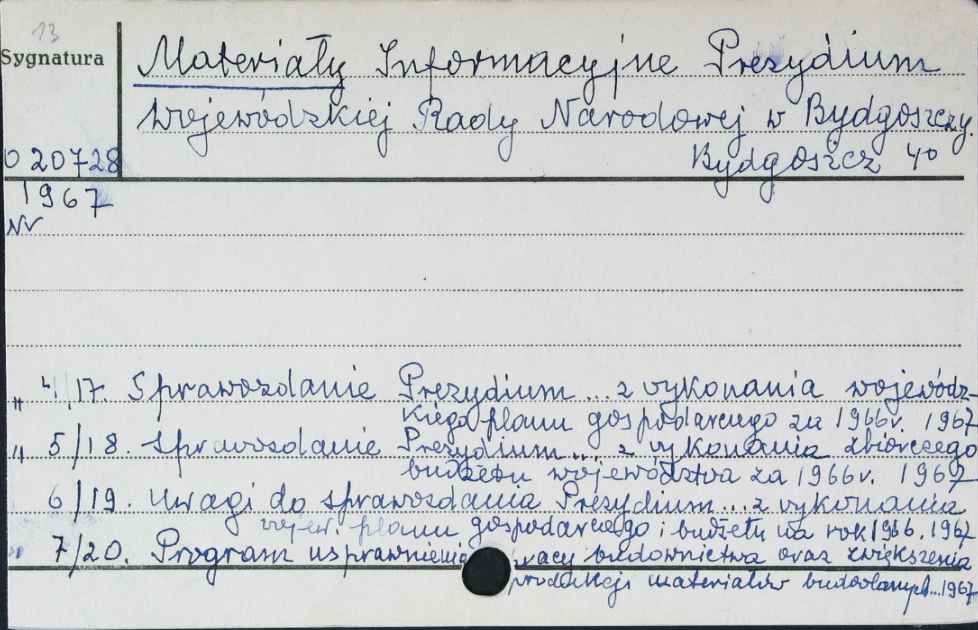 13
Sygnatura
Materiały Informacyjne Prezydium
Wojewódzkiej Rady Narodowej w Bydgoszczy.
0 20728 Bydgoszcz 40
1967
Nr
" 4/17. Sprawozdanie Prezydium... z wykonania wojewódz-
kiego planu gospodarczego za 1966r. 1967
" 5/18. Sprawozdanie Prezydium... z wykonania zbiorczego
budżetu województwa za 1966r. 1967
6/19. Uwagi do sprawozdania Prezydium... z wykonania
wojew. planu gospodarczego i budżetu na rok 1966. 1967
" 7/20. Program usprawnienia pracy budownictwa oraz zwiększenia
produkcji materiałów budowlanych...1967